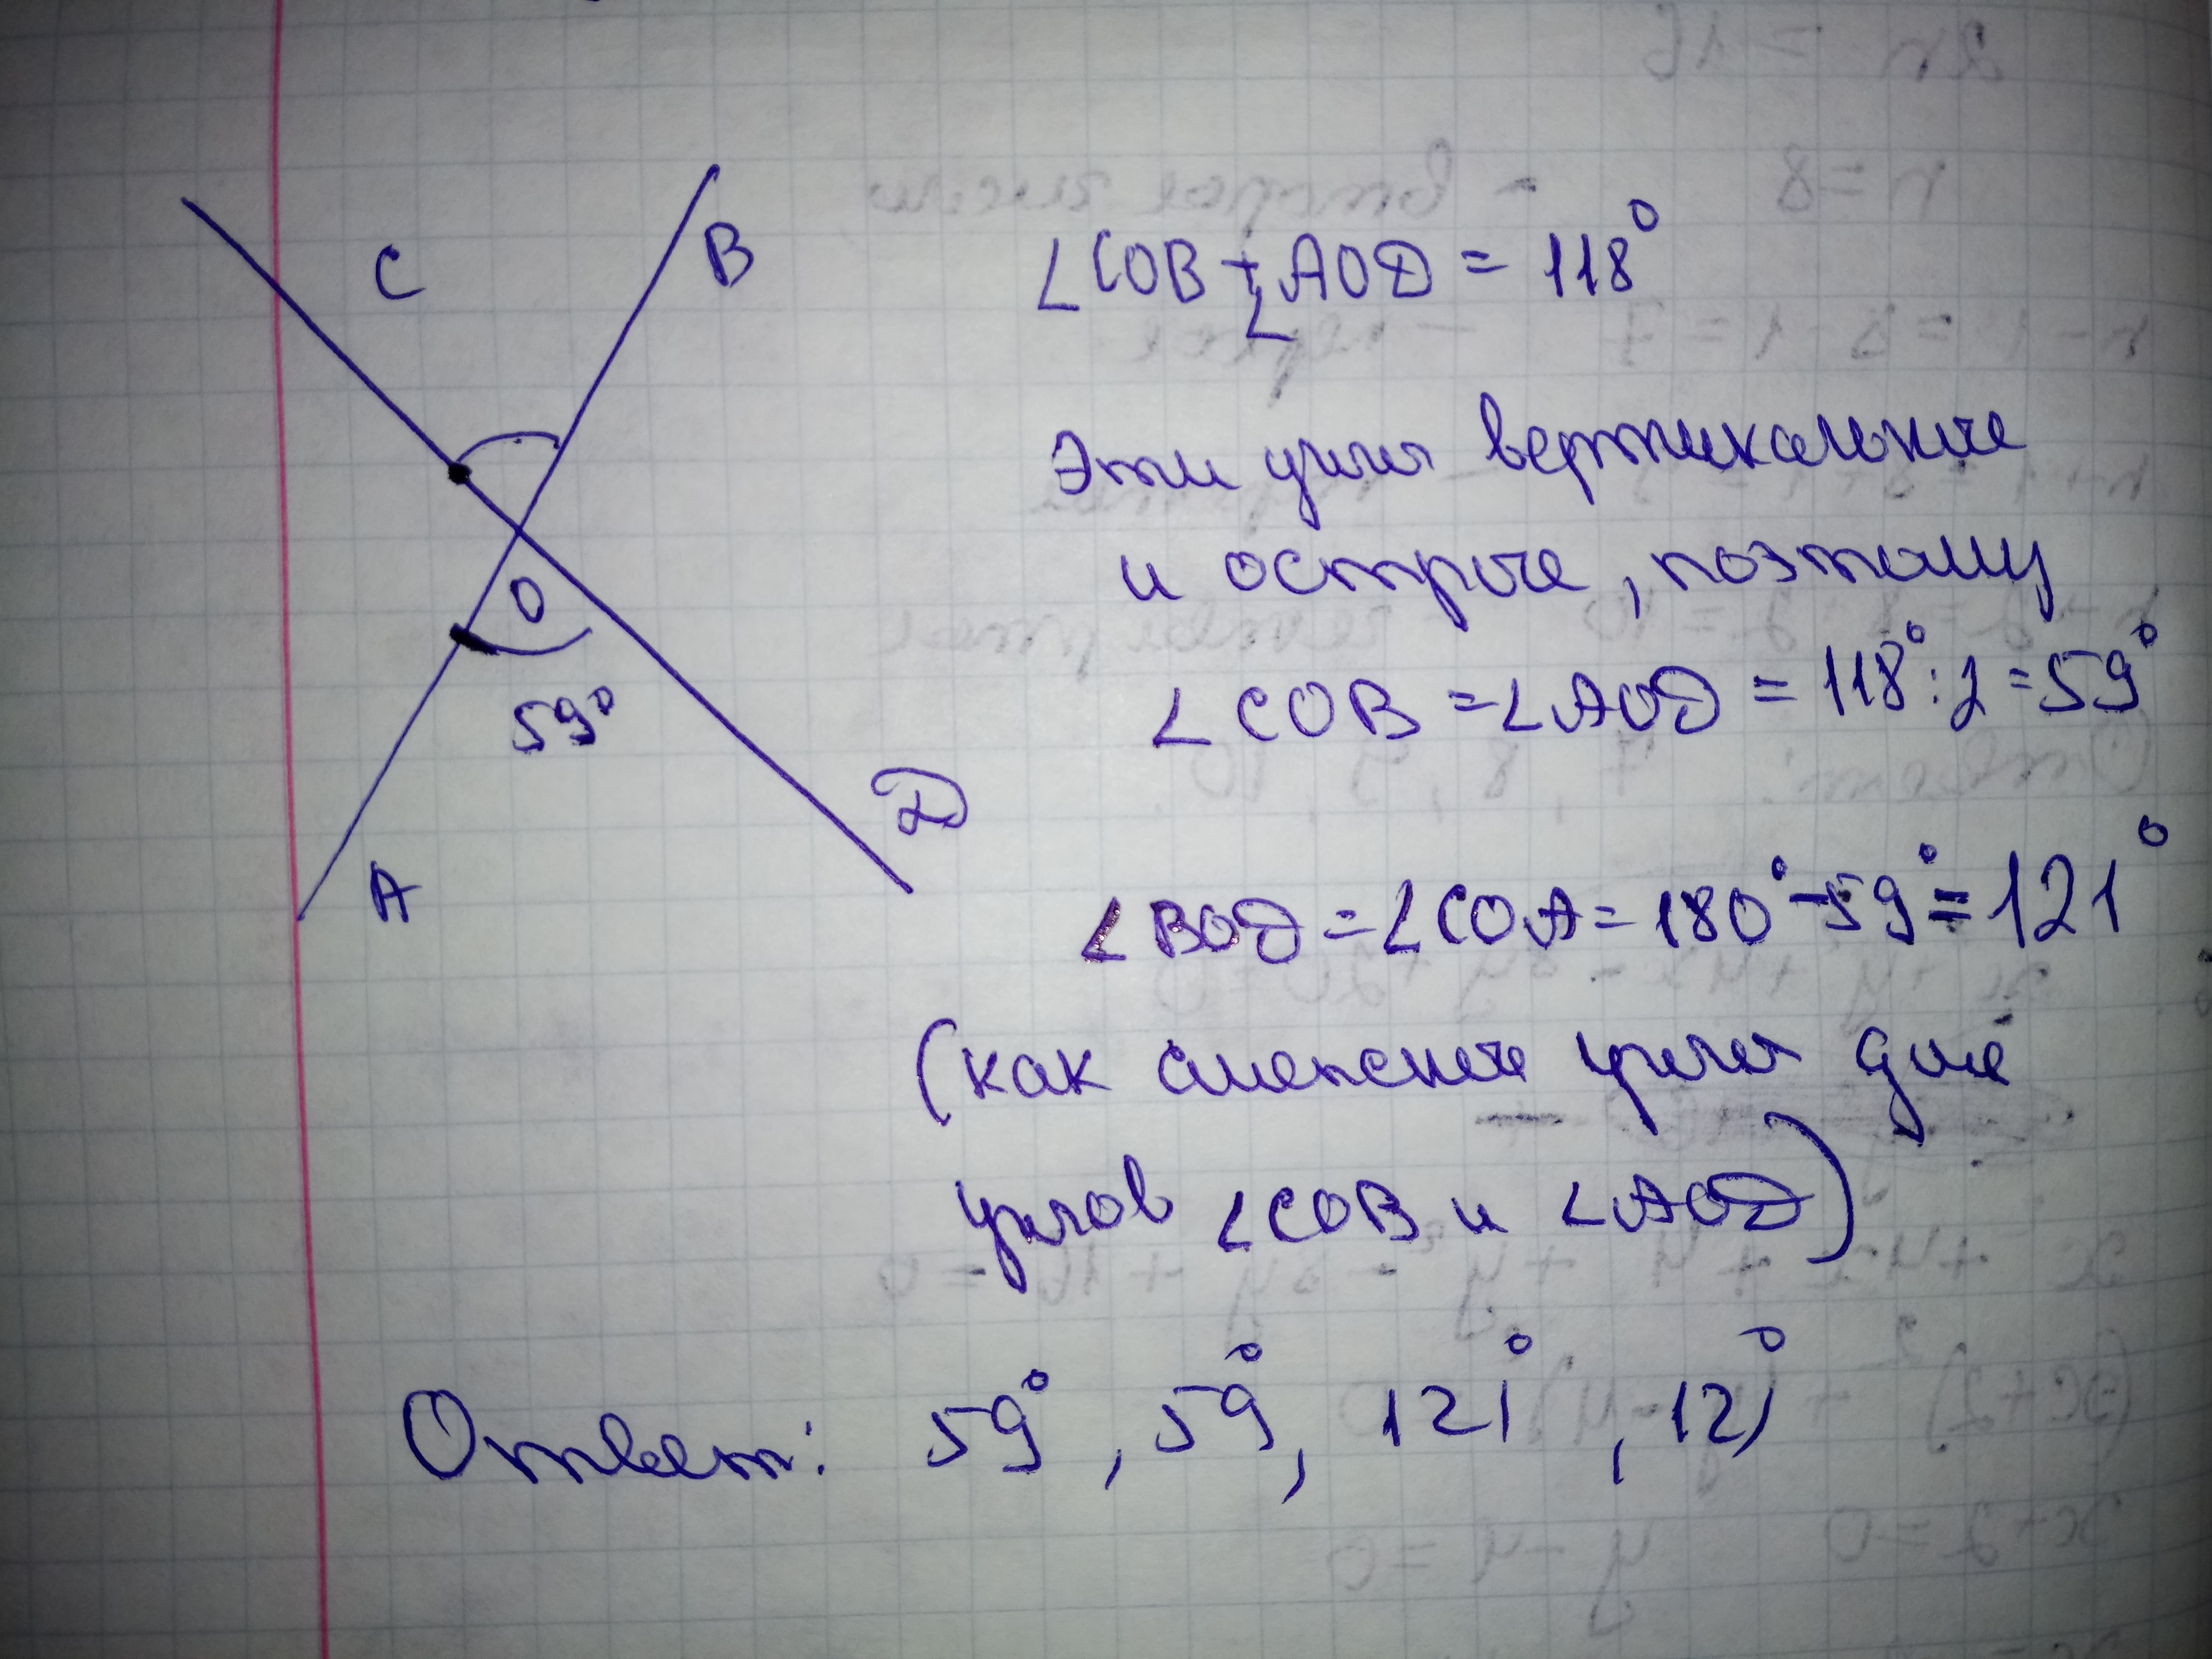 C
B
O
59°
A
D
∠COB + ∠AOD = 118°
Эти углы вертикальные
и острые, поэтому
∠COB = ∠AOD = 118° : 2 = 59°
∠BOD = ∠COA = 180° - 59° = 121°
(как смежные углы для
углов ∠COB и ∠AOD)
Ответ: 59°, 59°, 121°, 121°